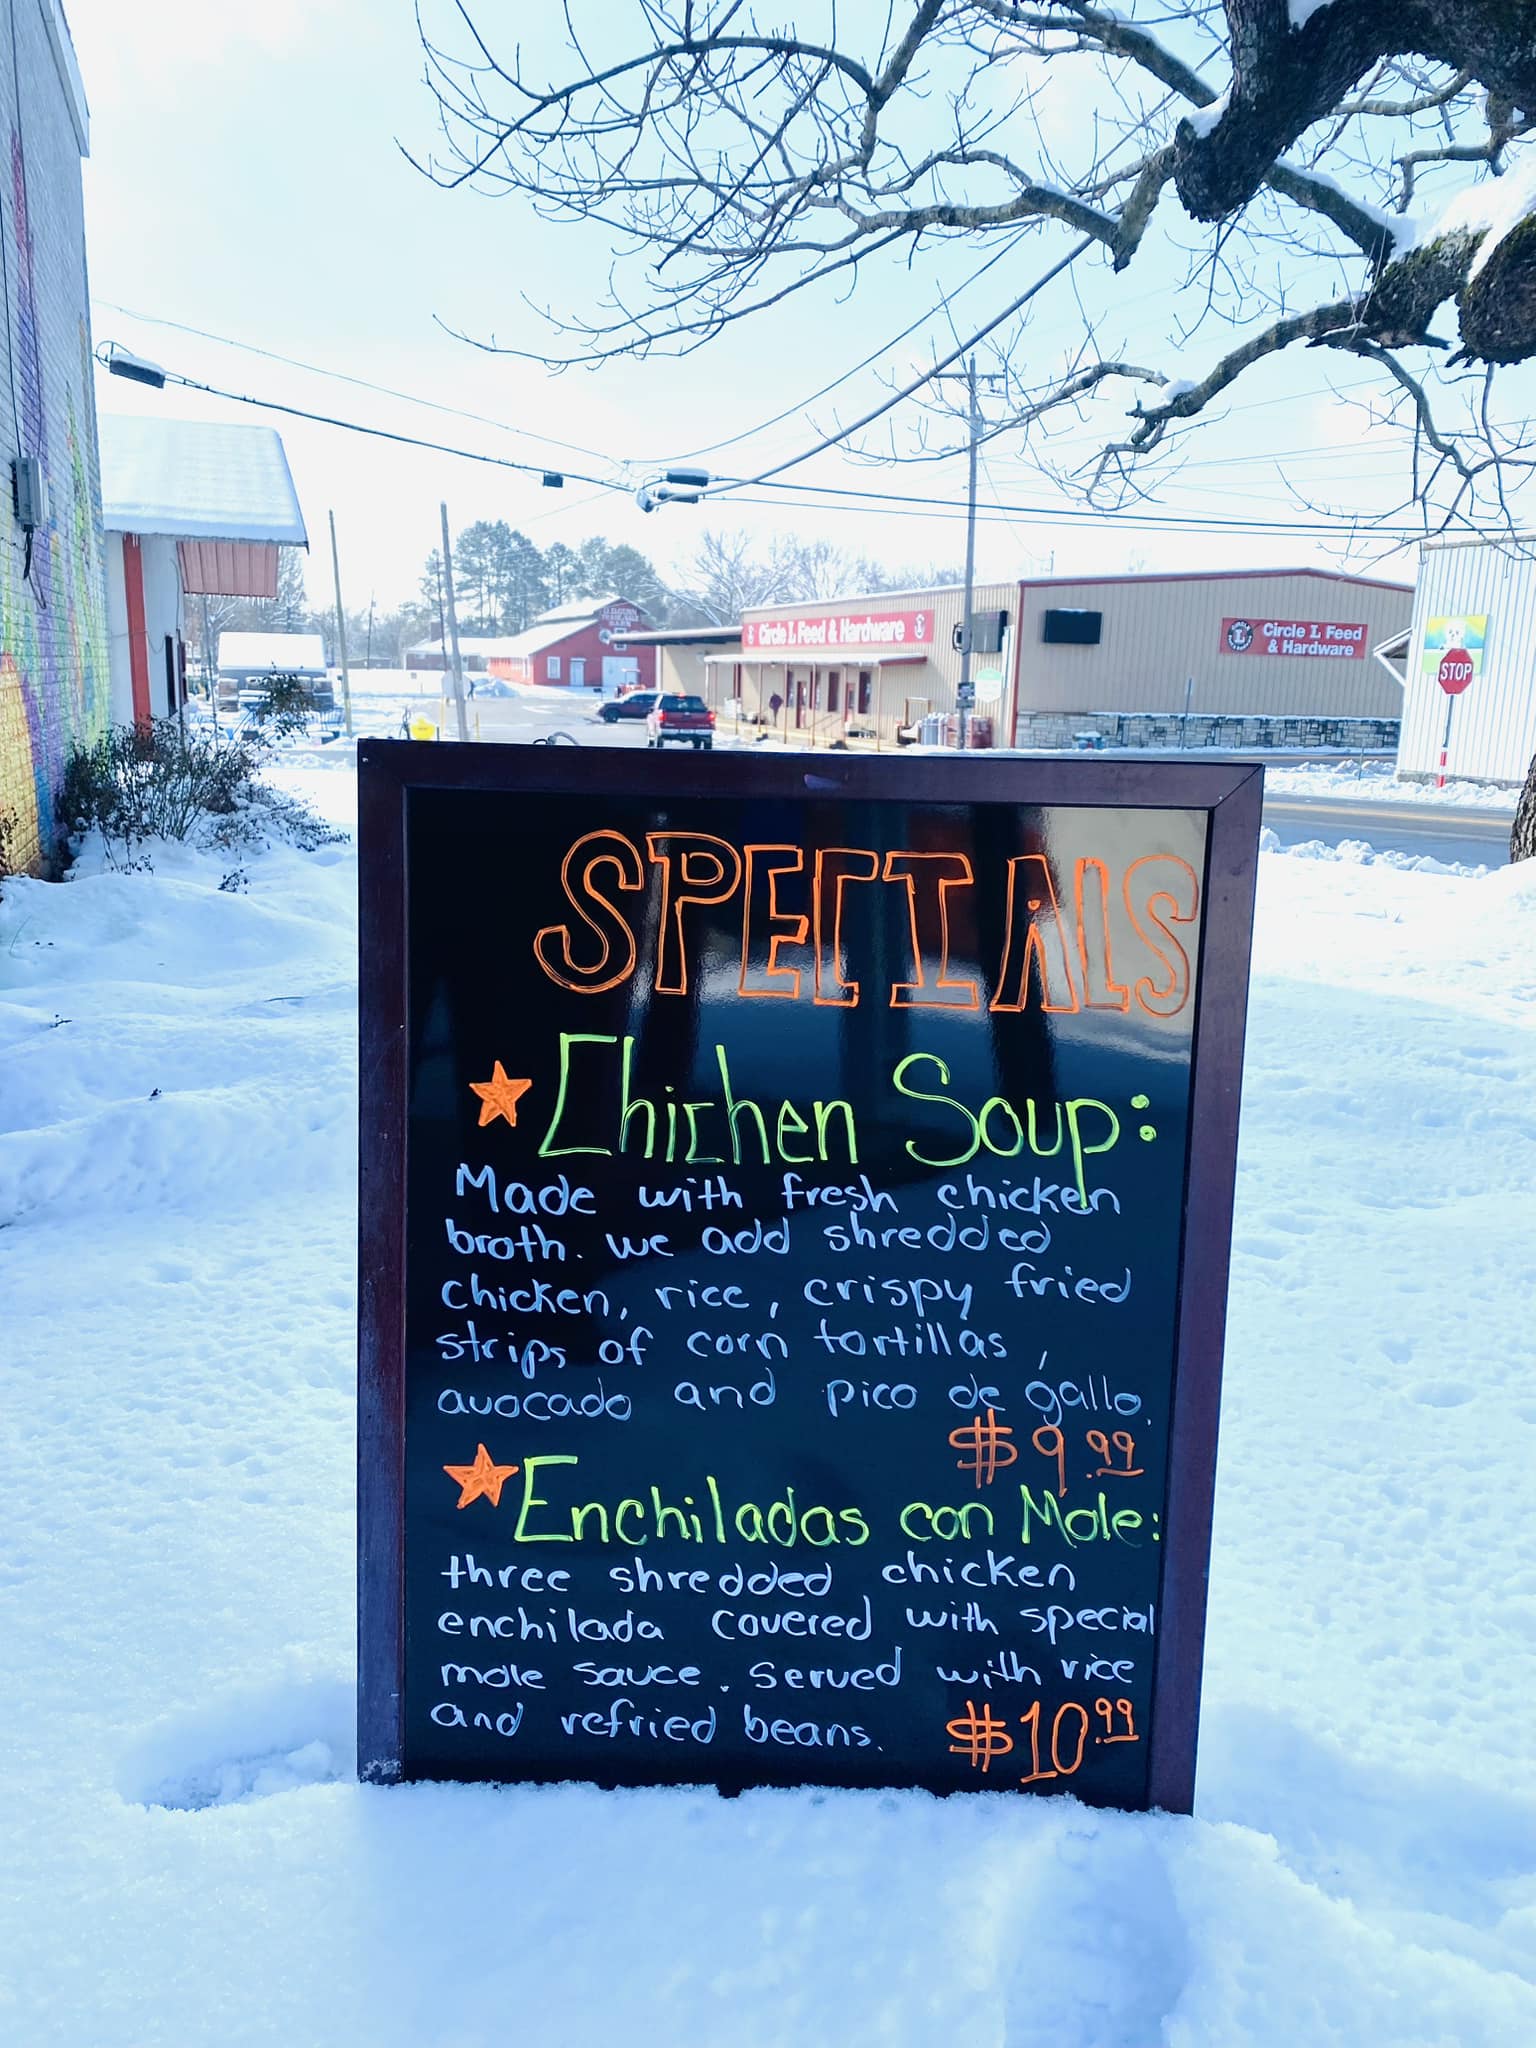 Circle L Feed & Hardware
Circle L Feed
& Hardware
STOP
SPECIALS
Chichen Soup:
Made with fresh chicken
broth. we add shredded
chicken, rice, crispy fried
strips of corn tortillas,
avocado and pico de gallo.
$9.99
Enchiladas con Mole:
three shredded chicken
enchilada covered with special
mole sauce. served with rice
and refried beans. $10.99